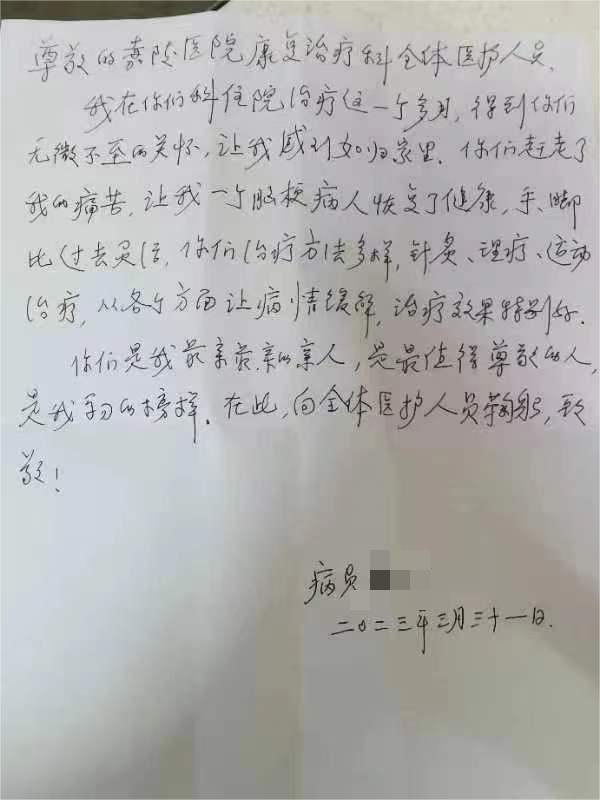 尊敬的嘉陵医院康复治疗科全体医护人员.
我在你们科住院治疗住一个多月, 得到你们
无微不至的关怀, 让我感到如归家里. 你们赶走了
我的痛苦, 让我一个脑梗病人恢复了健康, 手、脚
比过去灵活, 你们治疗方法多样, 针灸、理疗、运动
治疗, 从各个方面让病情缓解, 治疗效果特别好.
你们是我最亲最亲的亲人, 是最值得尊敬的人,
是我学习的榜样. 在此, 向全体医护人员鞠躬, 致
敬!
病员
二〇二三年三月三十一日.